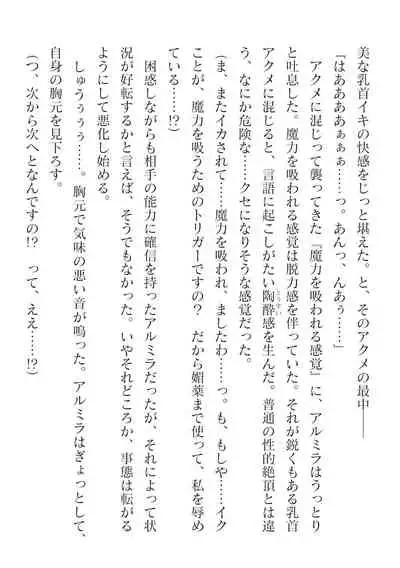 美な乳首イキの快感をじっと堪えた。と、そのアクメの最中――
「はああああぁぁぁ……っ。あんっ、んあぅ……」
　アクメに混じって襲ってきた『魔力を吸われる感覚』に、アルミラはうっとり
と吐息した。魔力を吸われる感覚は脱力感を伴っていた。それが鋭くもある乳首
アクメに混じると、言語に起こしがたい陶酔感を生んだ。普通の性的絶頂とは違
う、なにか危険な……クセになりそうな感覚だった。
（ま、またイカされて……魔力を吸われ、ましたわ……っ。も、もしや……イク
ことが、魔力を吸うためのトリガーですの？　だから媚薬まで使って、私を辱め
ている……!?）
　困惑しながらも相手の能力に確信を持ったアルミラだったが、それによって状
況が好転するかと言えば、そうでもなかった。いやそれどころか、事態は転がる
ようにして悪化し始める。
　しゅうぅぅぅ……。胸元で気味の悪い音が鳴った。アルミラはぎょっとして、
自身の胸元を見下ろす。
（つ、次から次へとなんですの!?　って、ええ……!?）